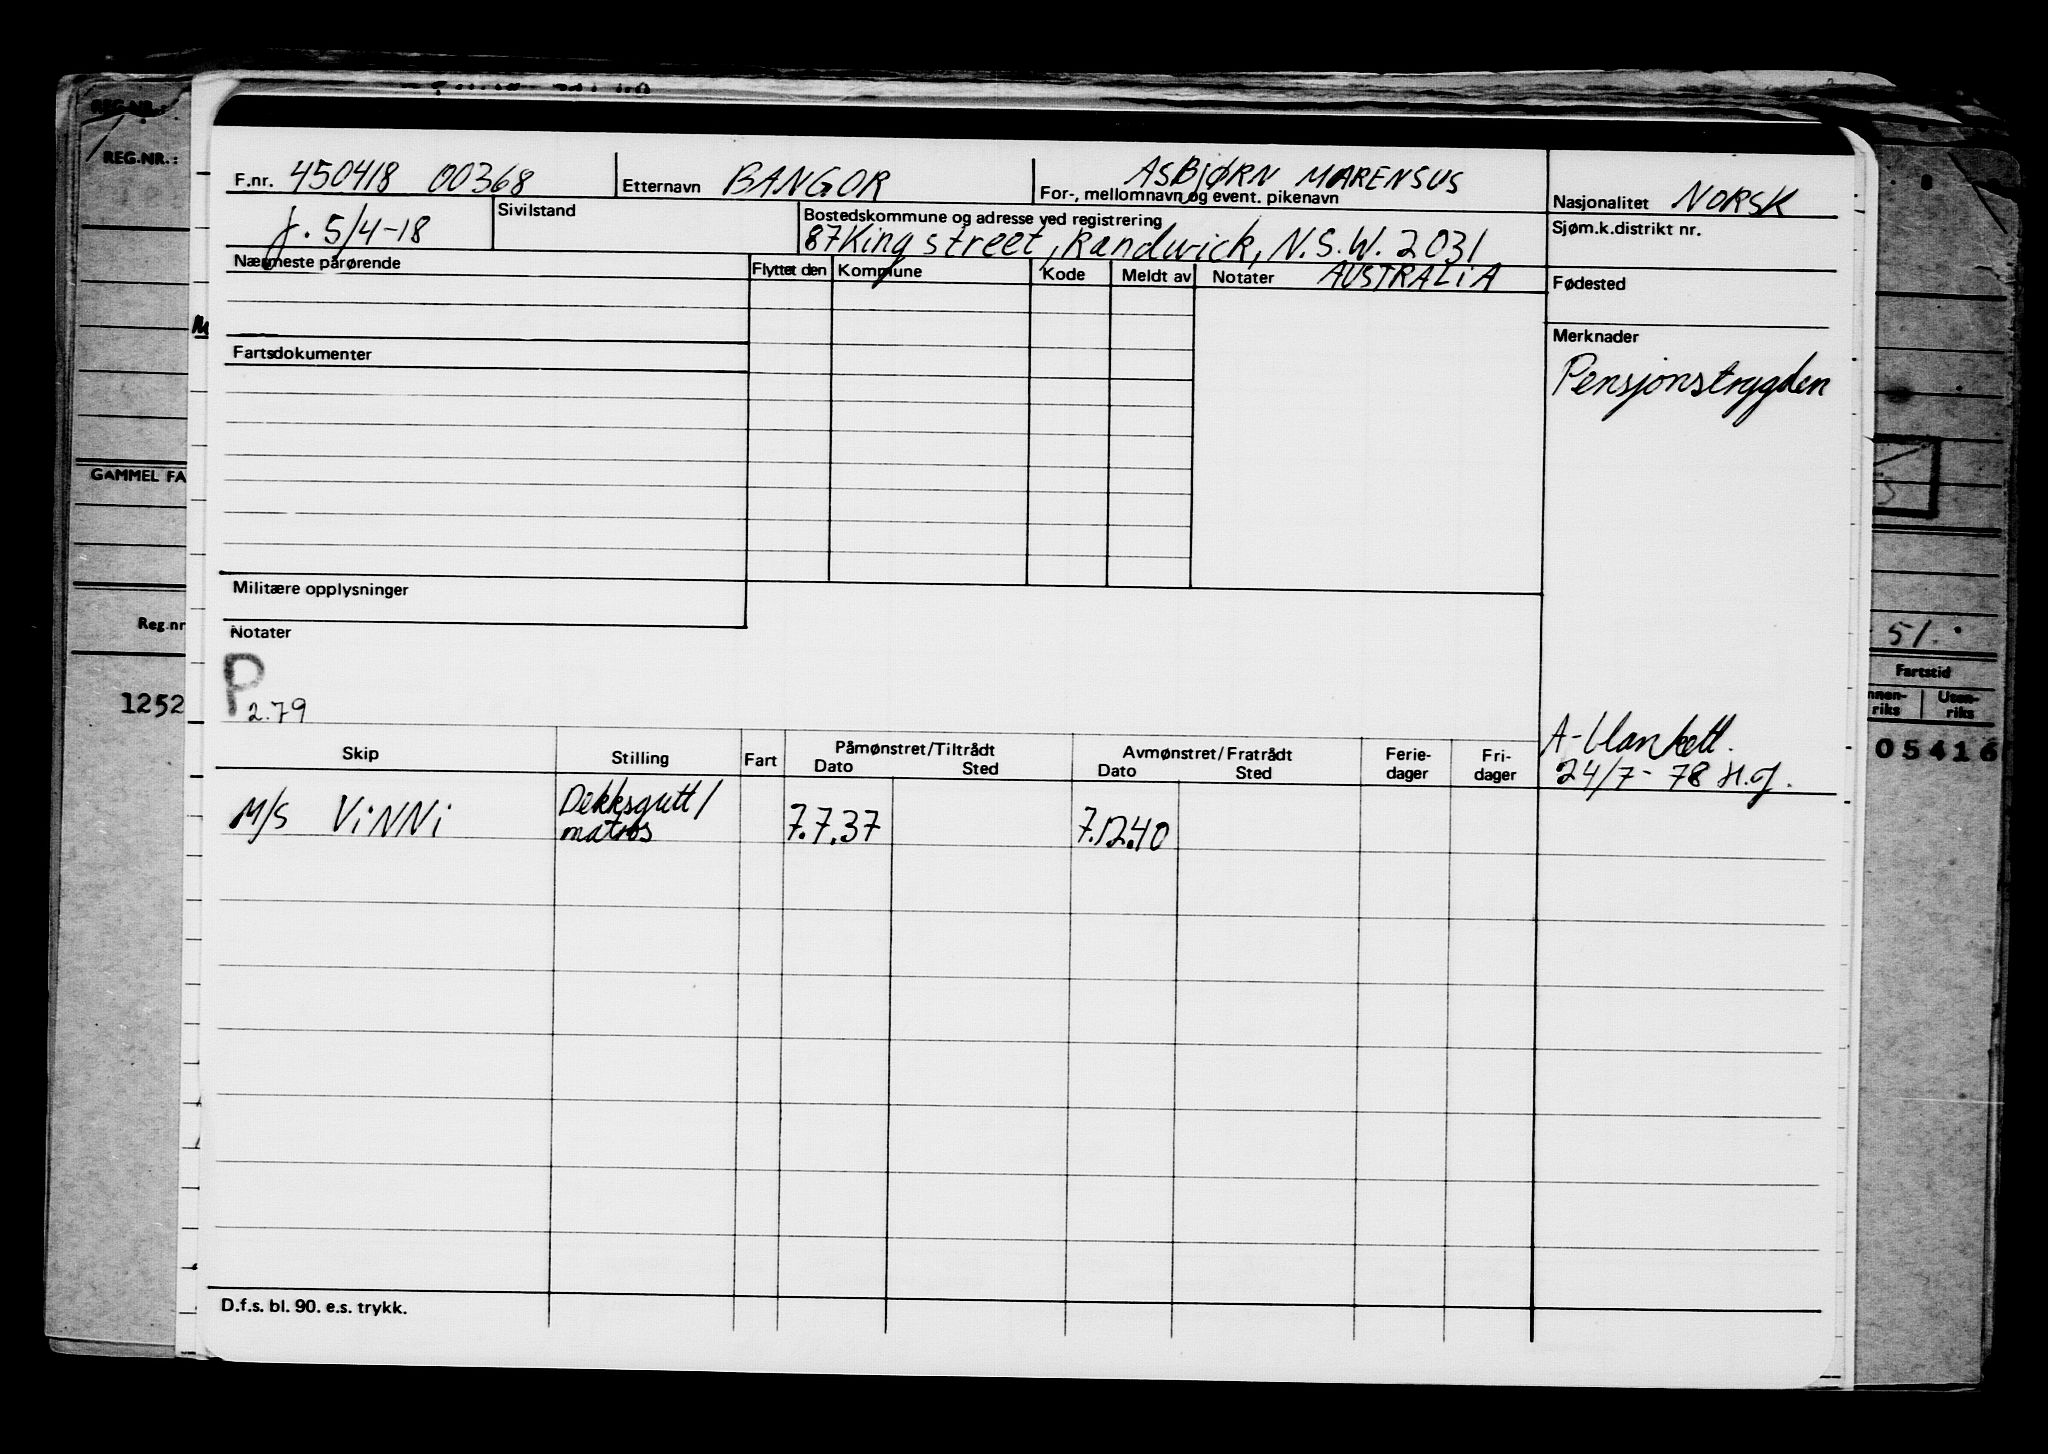 REG.NR.:
REG.NR.:
GAMMEL FA
Reg.nr
1252
F.nr. 450418 00368 Etternavn BANGOR ASBJØRN MARENSUS
For-, mellomnavn og event. pikenavn
Nasjonalitet NORSK
f. 5/4-18 Sivilstand Bostedskommune og adresse ved registrering
87 King street, Randwick, N.S.W. 2031
AUSTRALIA
Sjøm.k.distrikt nr.
Nærmeste pårørende Flyttet den Kommune Kode Meldt av Notater
Fødested
Merknader
Pensjonstrygden
Fartsdokumenter
Militære opplysninger
Notater
P 2.79
A-blankett.
24/7-78 H.J.
Skip Stilling Fart Påmønstret/Tiltrådt Avmønstret/Fratrådt Ferie- Fri-
Dato Sted Dato Sted dager dager
M/S ViNNi Dekksgutt/ 7.7.37 7.12.40
matros
D.f.s. bl. 90. e.s. trykk.
51.
Fartstid
nnen- Uten-
riks riks
05416